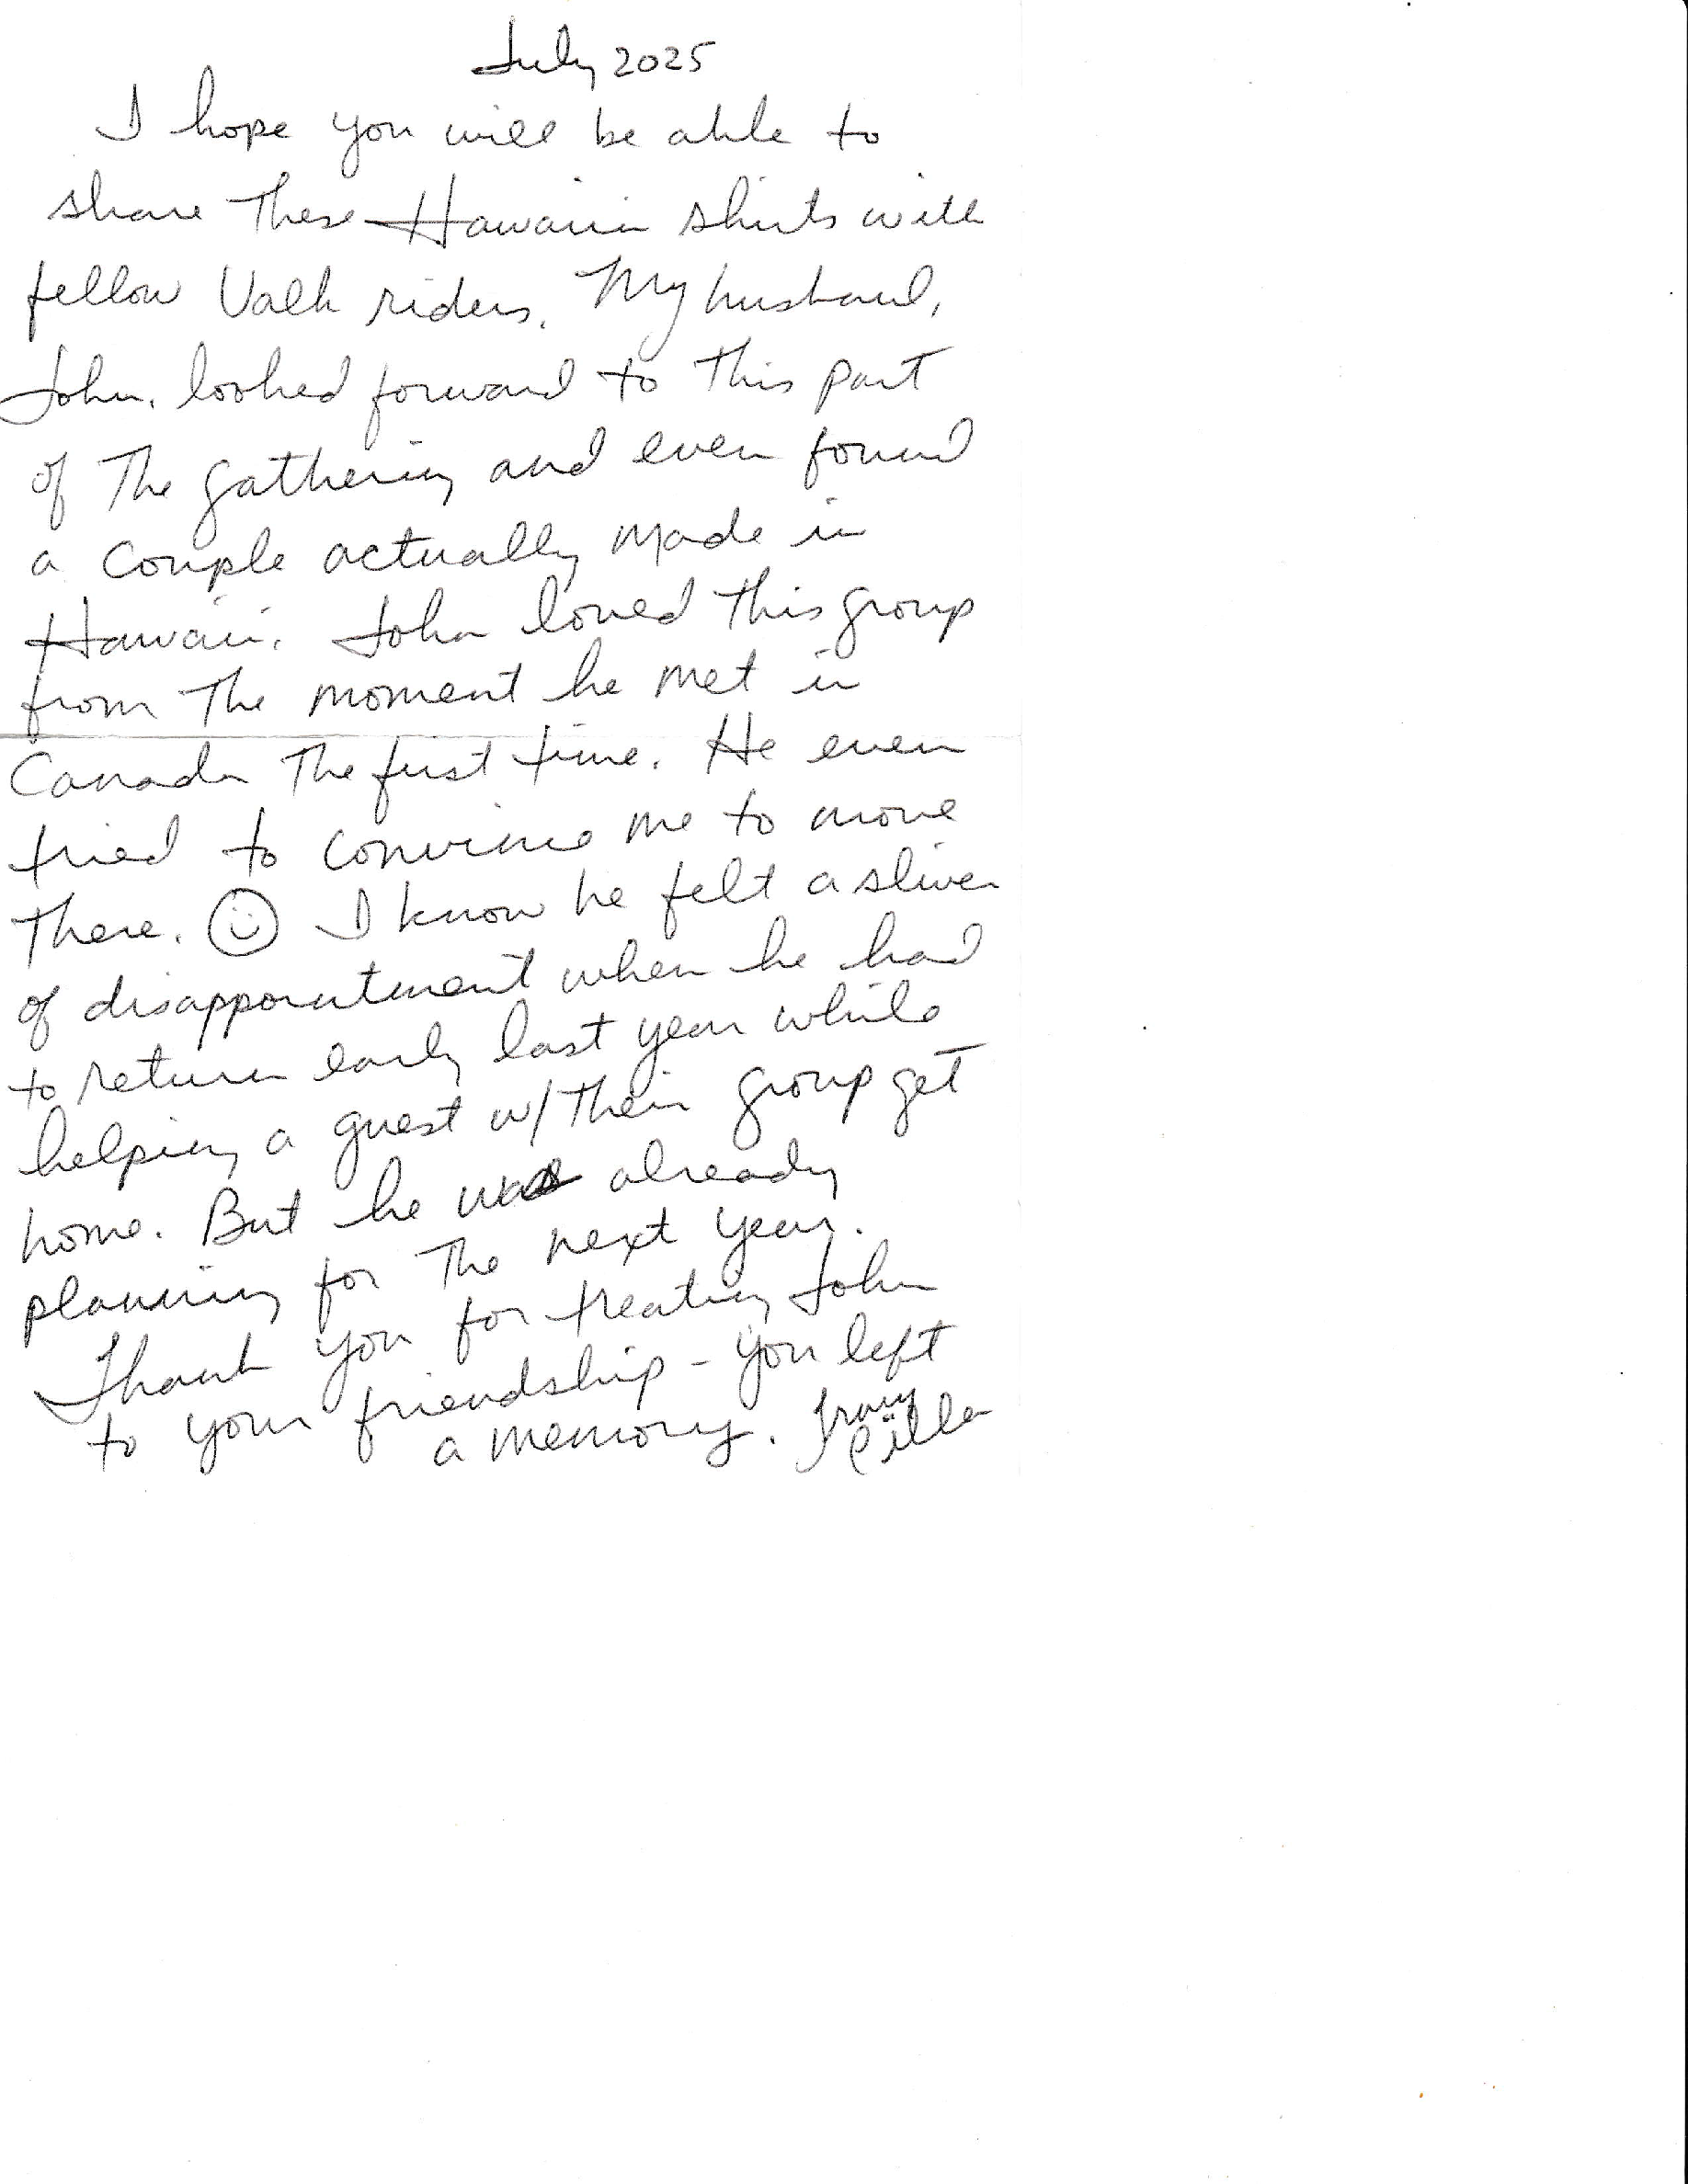 July 2025
I hope you will be able to
share these Hawaiin shirts with
fellow Valk riders. My husband,
John, looked forward to this part
of the gathering and even found
a couple actually made in
Hawaii. John loved this group
from the moment he met in
Canada the first time. He even
tried to convince me to move
there. ☺ I know he felt a sliver
of disappointment when he had
to return early last year while
helping a guest w/ their group get
home. But he was already
planning for the next year.
Thank you for treating John
to your friendship - you left
a memory.